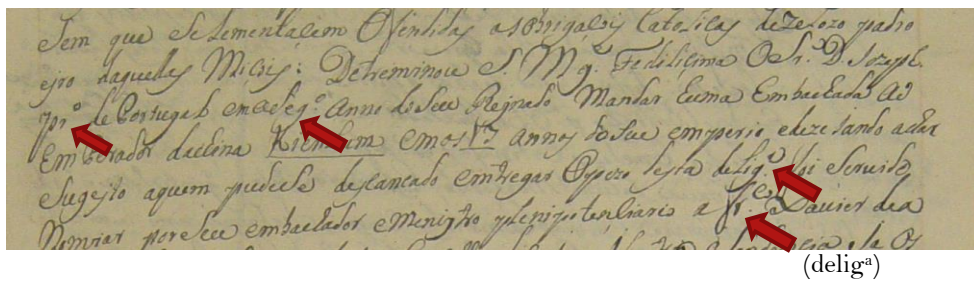 Sem que se lementaSem Ofendidas as obrigasois Catolicas de zelozo padro
eiro daquellas Misois: Detreminou S. Mg. Fedilicima O Sr. D. Jozeph
pr.º de Portugal em o seg.º Anno do Seu Reynado Mandar huma Embachada ao
Emperador da china Kiemlum em os 17 annos do Seu emperio e dezejando achar
Sugeito aquem pudese descancado emtregar O pezo desta delig.ª foi Servido
Nomiar por Seu embachador e Menistro plenipotenciario a Fr.co Xavier de a
(delig<sup>a</sup>)